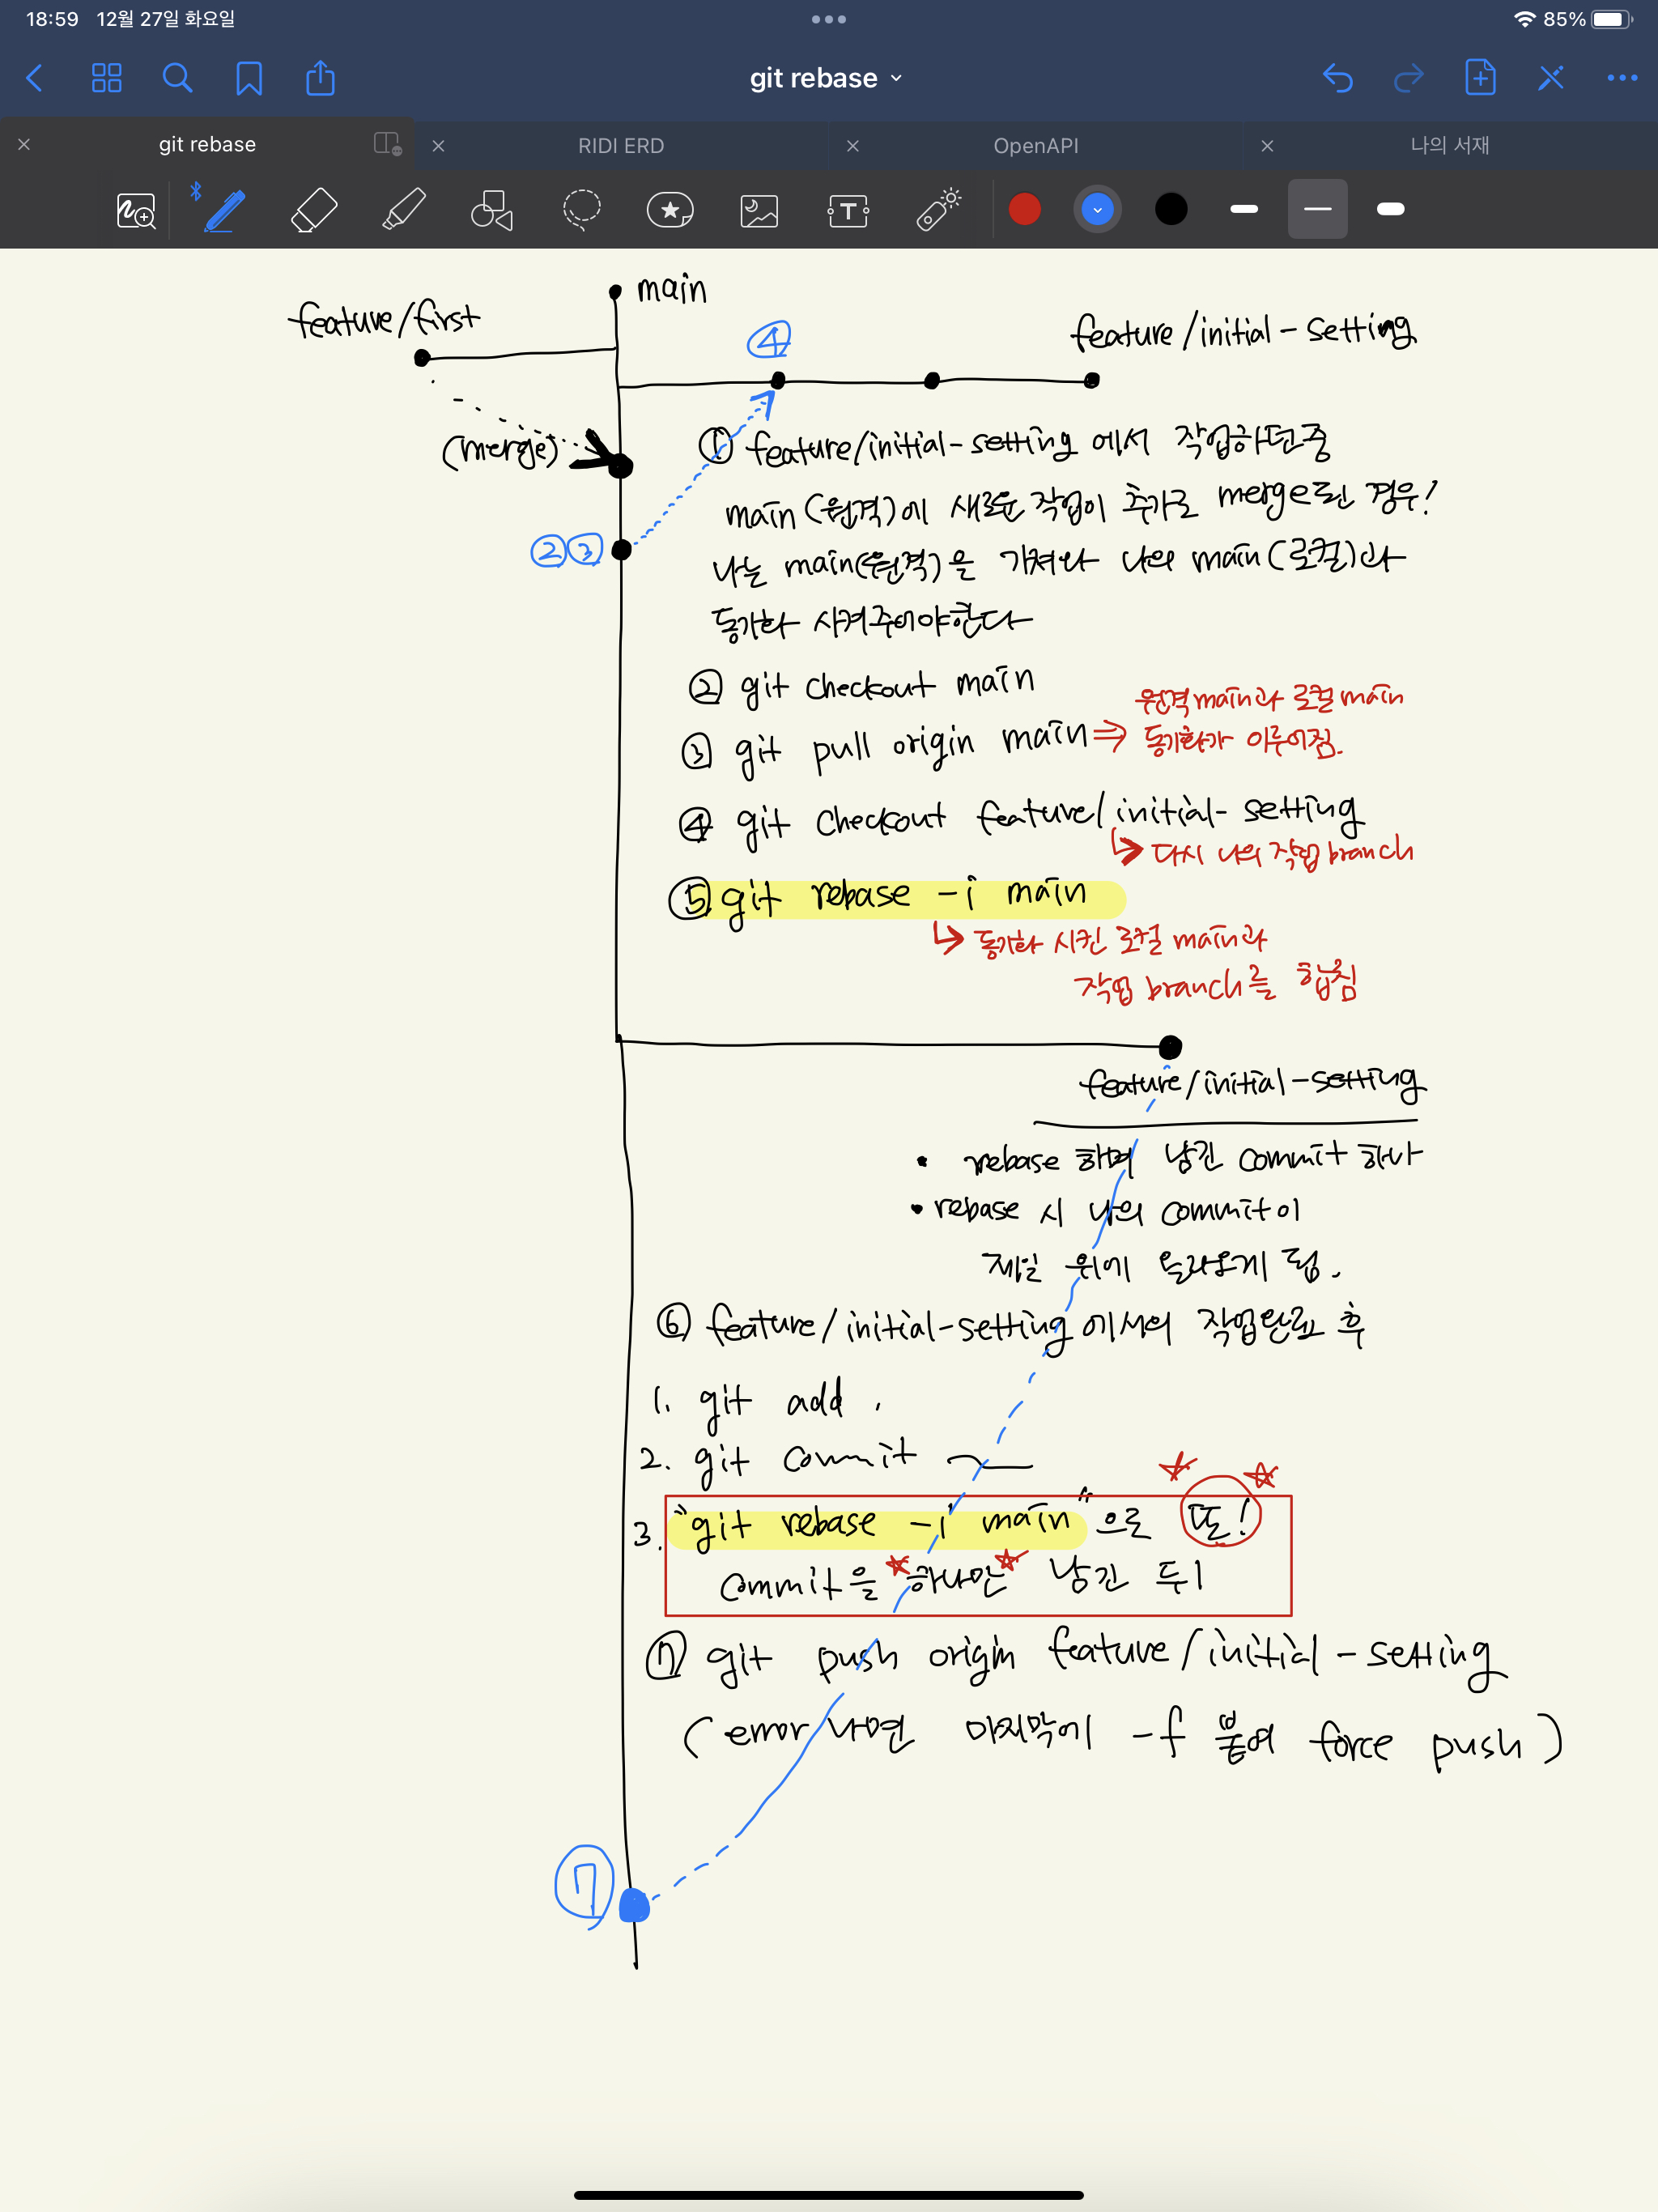 18:59 12월 27일 화요일
85%
git rebase
git rebase
RIDI ERD
OpenAPI
나의 서재
T
main
feature/first
④
feature/initial-setting
(merge)
① feature/initial-setting 에서 작업하던 중
main(원격)에 새로운 작업이 추가로 merge된 경우!
②③
나는 main(원격)을 가져와 나의 main(로컬)과
동기화 시켜주어야한다
② git checkout main
원격main과 로컬 main
③ git pull origin main ⇒ 동기화가 이루어짐.
④ git checkout feature/initial-setting
↳ 다시 나의 작업 branch
⑤ git rebase -i main
↳ 동기화 시킨 로컬 main과
작업 branch를 합침
feature/initial-setting
• rebase 하며 남긴 commit 하나
• rebase 시 나의 commit이
제일 위에 올라오게 됨.
⑥ feature/initial-setting 에서의 작업완료 후
1. git add .
2. git commit
3. "git rebase -i main"으로 또!
commit을 하나만 남긴 두기
⑦ git push origin feature/initial-setting
(error 나면 마지막에 -f 붙여 force push)
⑦